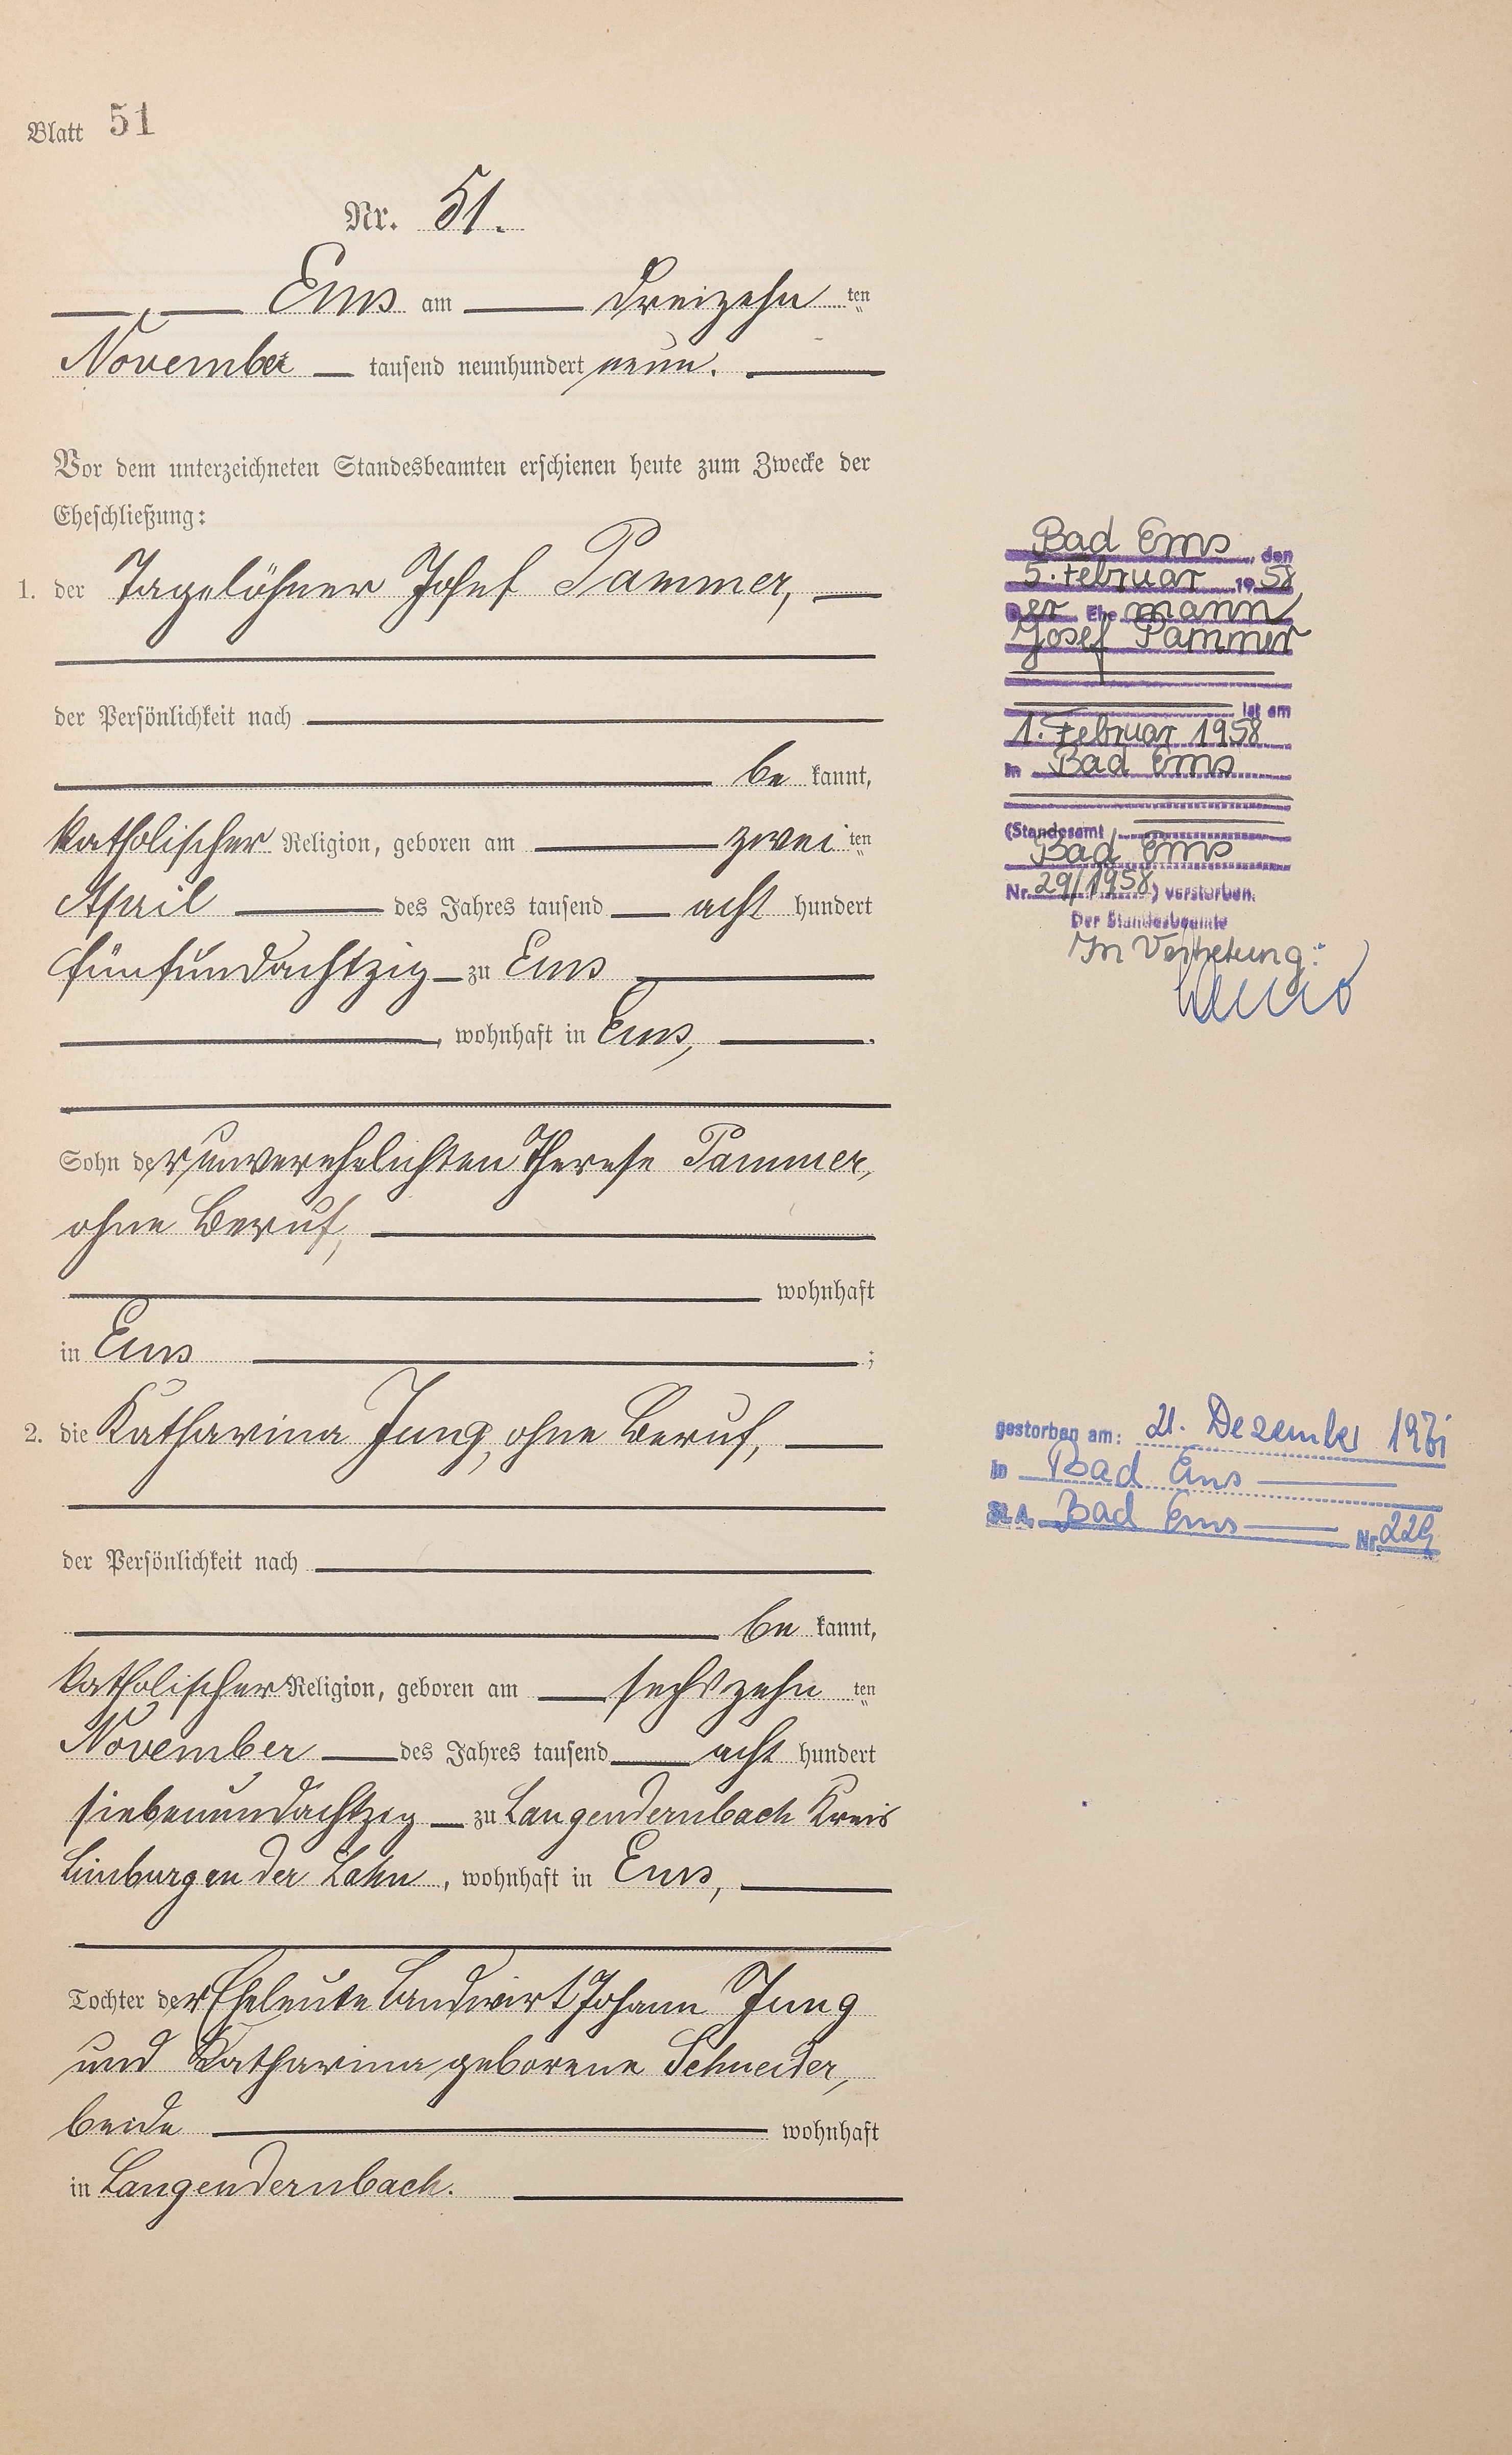 Blatt 51
Nr. 51.
Ems am Dreizehn ten
November tausend neunhundert neun.
Vor dem unterzeichneten Standesbeamten erschienen heute zum Zwecke der
Eheschließung:
1. der Tagelöhner Josef Pammer,
der Persönlichkeit nach
be kannt,
katholischer Religion, geboren am zwei ten
April des Jahres tausend acht hundert
fünfundachtzig zu Ems
, wohnhaft in Ems,
Sohn der unverehelichten Therese Pammer,
ohne Beruf,
wohnhaft
in Ems ;
2. die Katharina Jung, ohne Beruf,
der Persönlichkeit nach
be kannt,
katholischer Religion, geboren am sechszehn ten
November des Jahres tausend acht hundert
siebenundachtzig zu Langendernbach Kreis
Limburg an der Lahn, wohnhaft in Ems,
Tochter der Eheleute Landwirt Johann Jung
und Katharina geborene Schneider,
beide wohnhaft
in Langendernbach.
Bad Ems, den
5. Februar 1958
Der Ehemann
Josef Pammer
ist am
1. Februar 1958
in Bad Ems
(Standesamt
Bad Ems
Nr. 29/1958) verstorben.
Der Standesbeamte
In Vertretung:
gestorben am: 21. Dezember
in Bad Ems
St.A. Bad Ems Nr. 229